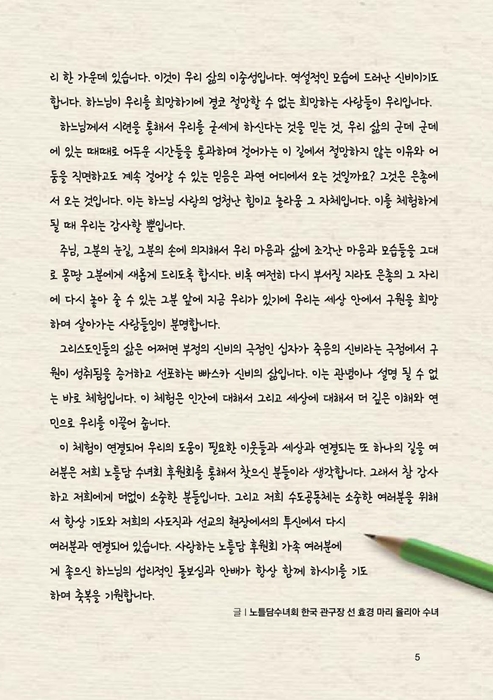 리 한 가운데 있습니다. 이것이 우리 삶의 이중성입니다. 역설적인 모습에 드러난 신비이기도
합니다. 하느님이 우리를 희망하기에 결코 절망할 수 없는 희망하는 사람들이 우리입니다.
하느님께서 시련을 통해서 우리를 굳세게 하신다는 것을 믿는 것, 우리 삶의 군데 군데
에 있는 때때로 어두운 시간들을 통과하며 걸어가는 이 길에서 절망하지 않는 이유와 어
둠을 직면하고도 계속 걸어갈 수 있는 믿음은 과연 어디에서 오는 것일까요? 그것은 은총에
서 오는 것입니다. 이는 하느님 사랑의 엄청난 힘이고 놀라움 그 자체입니다. 이를 체험하게
될 때 우리는 감사할 뿐입니다.
주님, 그분의 눈길, 그분의 손에 의지해서 우리 마음과 삶에 조각난 마음과 모습들을 그대
로 몽땅 그분에게 새롭게 드리도록 합시다. 비록 여전히 다시 부서질 지라도 은총의 그 자리
에 다시 놓아 줄 수 있는 그분 앞에 지금 우리가 있기에 우리는 세상 안에서 구원을 희망
하며 살아가는 사람들임이 분명합니다.
그리스도인들의 삶은 어쩌면 부정의 신비의 극점인 십자가 죽음의 신비라는 극점에서 구
원이 성취됨을 증거하고 선포하는 빠스카 신비의 삶입니다. 이는 관념이나 설명 될 수 없
는 바로 체험입니다. 이 체험은 인간에 대해서 그리고 세상에 대해서 더 깊은 이해와 연
민으로 우리를 이끌어 줍니다.
이 체험이 연결되어 우리의 도움이 필요한 이웃들과 세상과 연결되는 또 하나의 길을 여
러분은 저희 노틀담 수녀회 후원회를 통해서 찾으신 분들이라 생각합니다. 그래서 참 감사
하고 저희에게 더없이 소중한 분들입니다. 그리고 저희 수도공동체는 소중한 여러분을 위해
서 항상 기도와 저희의 사도직과 선교의 현장에서의 투신에서 다시
여러분과 연결되어 있습니다. 사랑하는 노틀담 후원회 가족 여러분에
게 좋으신 하느님의 섭리적인 돌보심과 안배가 항상 함께 하시기를 기도
하며 축복을 기원합니다.
글 | 노틀담수녀회 한국 관구장 선 효경 마리 율리아 수녀
5